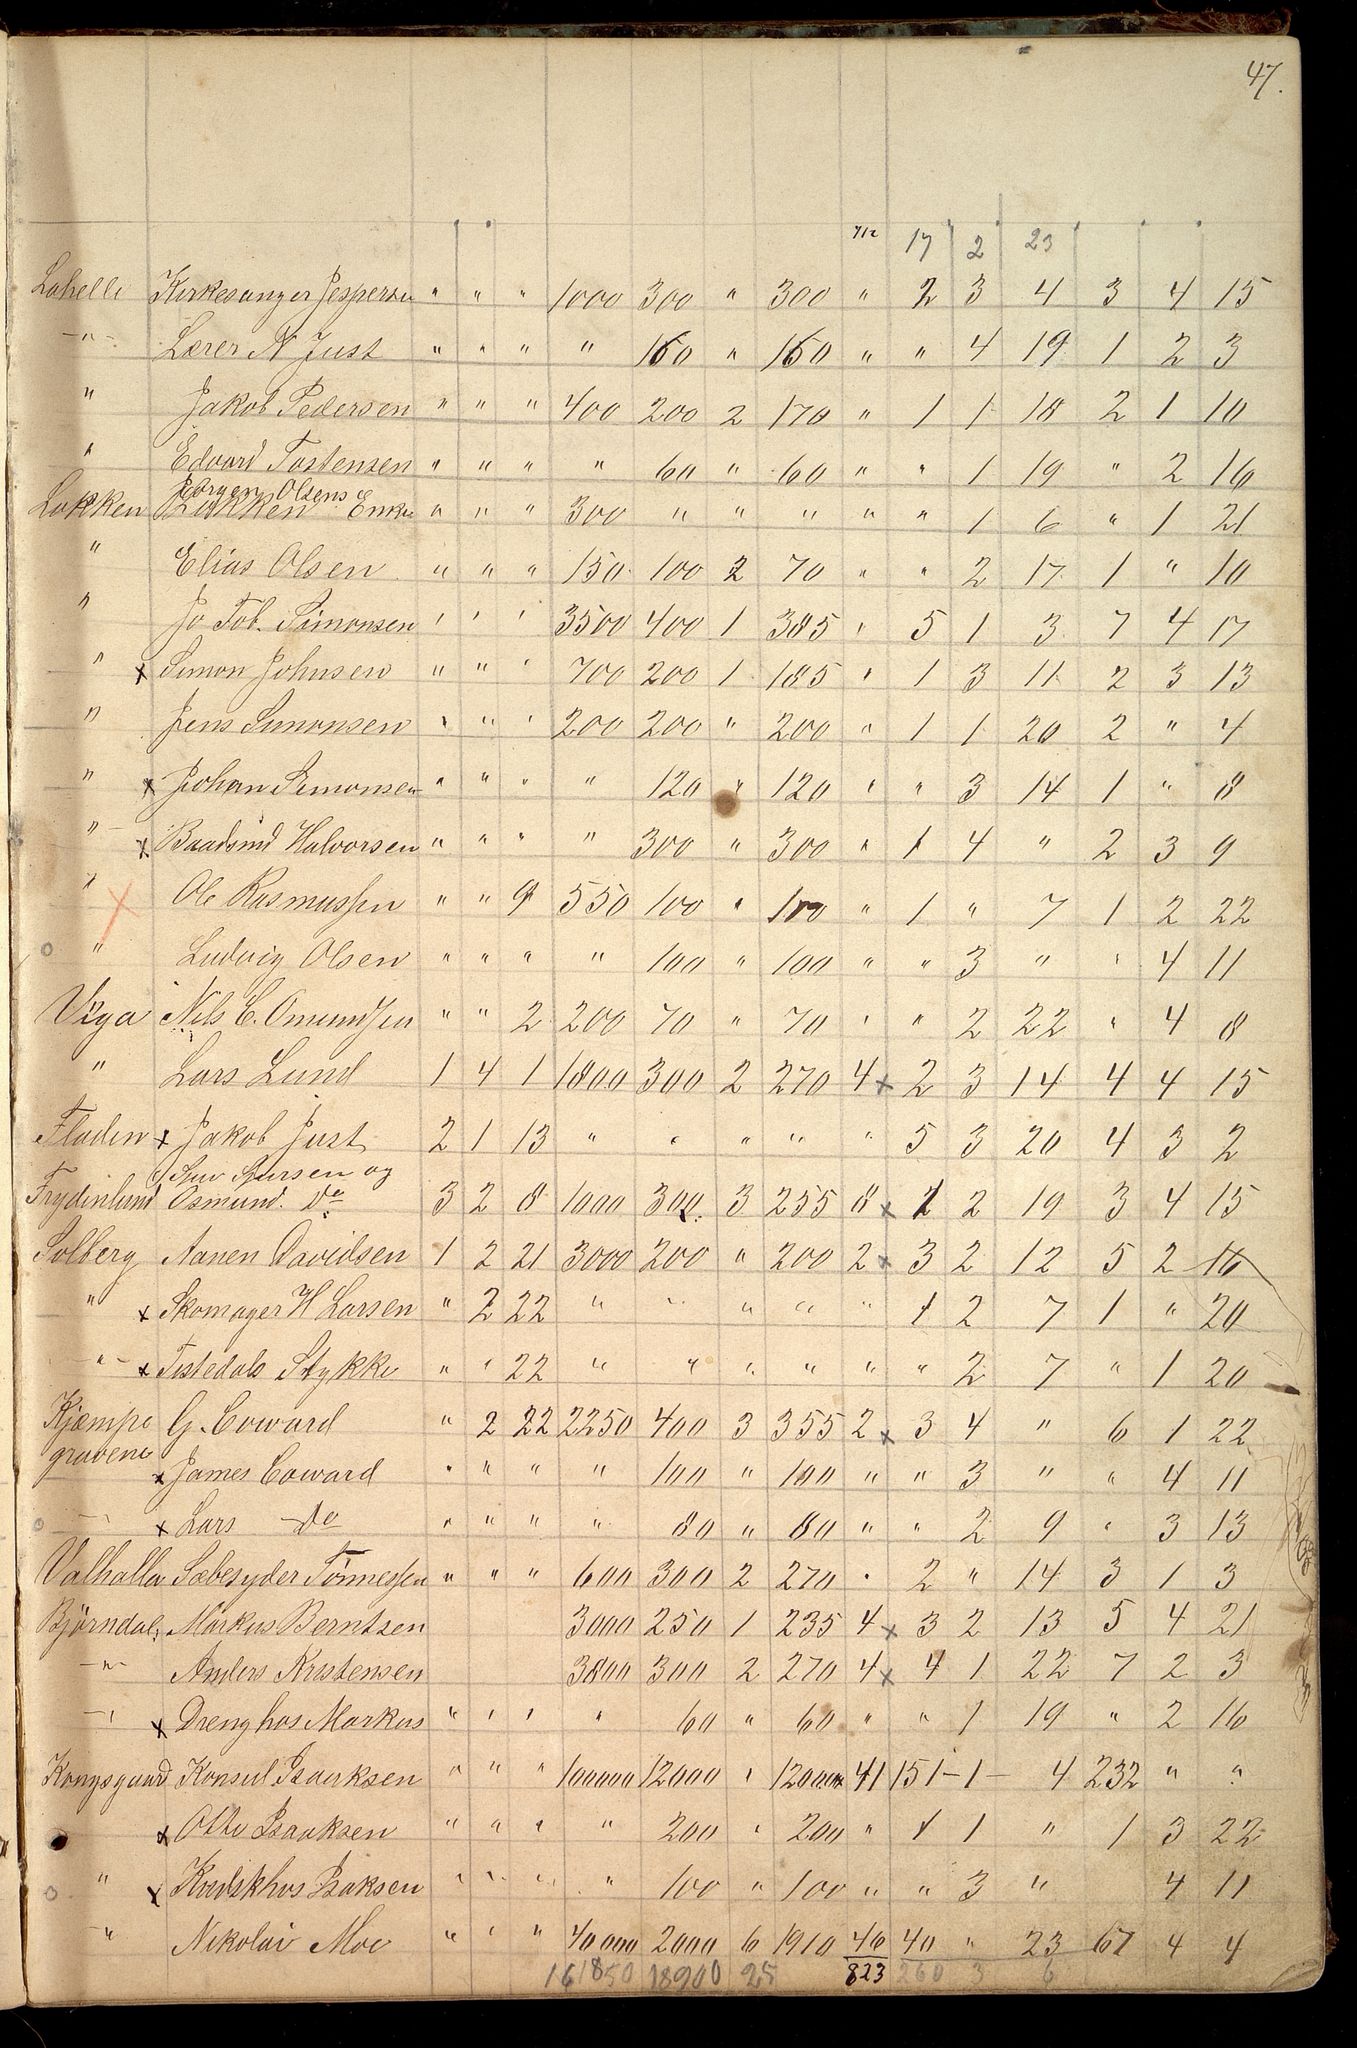 47.
712 17 2 23
Lahelle Kirkesanger Jespersen " " " 1000 300 " 300 " 2 3 4 3 4 15
-"- Lærer N Just " " " " 160 " 160 " " 4 19 1 2 3
" Jakob Pedersen " " " 400 200 2 170 " 1 1 18 2 1 10
" Edvard Tostensen " " " " 60 " 60 " " 1 19 " 2 16
Jörgen Olsens
Lokken Lokken Enke " " " 300 " " " " " 1 6 " 1 21
" Elias Olsen " " " 150 100 2 70 " " 2 17 1 " 10
" Jo Tob. Simonsen " " " 3500 400 1 385 " 5 1 3 7 4 17
" x Simon Johnsen " " " 700 200 1 185 " 1 3 11 2 3 13
" Jens Simonsen " " " 200 200 " 200 " 1 1 20 2 " 4
" x Johan Simonsen " " " " 120 " 120 " " 3 14 1 " 8
" x Baadsmd Halvorsen " " " " 300 " 300 " 1 4 " 2 3 9
" x Ole Rasmussen " " 9 550 100 " 100 " 1 " 7 1 2 22
o " Ludvig Olsen " " " " 100 " 100 " " 3 " " 4 11
Viga Nils C. Omundsen " " 2 200 70 " 70 " " 2 22 " 4 8
" Lars Lund 1 4 1 1800 300 2 270 4 x 2 3 14 4 4 15
Fladen x Jakob Just 2 1 13 " " " " " 5 3 20 4 3 2
og
Frydenlund Osmund. Do 3 2 8 1000 300 3 255 8 x 1 2 19 3 4 15
Solberg Aanen Davidsen 1 2 21 3000 200 " 200 2 x 3 2 12 5 2 16
" x Skomager H Larsen " 2 22 " " " " " 1 2 7 1 " 20
-"- x Tistedals Stykke " " 22 " " " " " " 2 7 " 1 20
Kjæmpe G. Coward " 2 22 2250 400 3 355 2 x 3 4 " 6 1 22
gravene x James Coward " " " " 100 " 100 " " 3 " " 4 11
o -"- x Lars Do " " " " 80 " 80 " " 2 9 " 3 13
Valhalla Sæbesyder Tönnessen " " " 600 300 2 270 " 2 " 14 3 1 3
Björndal. Markus Berntsen 3000 250 1 235 4 x 3 2 13 5 4 21
-"- Anders Kristensen 3800 300 2 270 4 x 4 1 22 7 2 3
-"- x Dreng hos Markus " " " " 60 " 60 " " 1 19 " 2 16
Kongsgaard Konsul Isaeksen " " " 100000 12000 " 12000 x 41 151 - 1 - 4 232 " "
x Otto Isaaksen " " " " 200 " 200 " 1 1 " 1 3 22
o " x Kudskhos Isaksen " " " " 100 " 100 " " 3 " 4 11
" Nikolai Moe " " " 40000 2000 6 1910 46 40 " 23 67 4 4
161850 18900 25 823 260 3 6